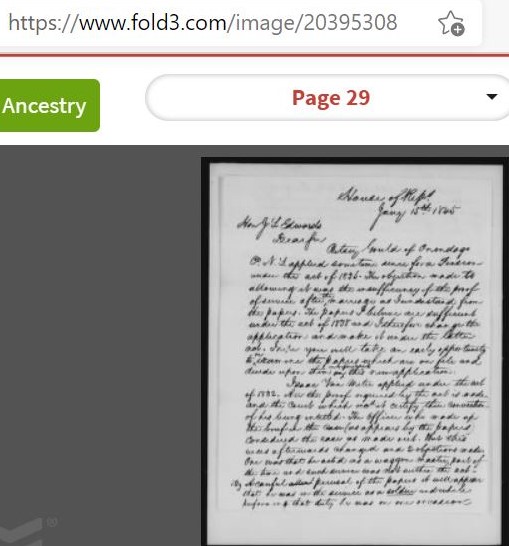 https://www.fold3.com/image/20395308
Ancestry
Page 29
House of Reps
Jany 15th 1845
Hon J L Edwards
Dear Sir
Gould of Onondaga
Co. N.Y. applied sometime since for a Pension
under the act of 1836. The objection made to
allowing it was the insufficiency of the proof
of service after marriage as I understand from
the papers. The papers I believe are sufficient
under the act of 1838 and I therefore change the
application and make it under the latter
act. you will take an early opportunity
to examine the papers which are on file and
decide upon this application.
Isaac Van applied under the act
of 1832. All the proof required by the act is made
and the Court which certify their conviction
of his being entitled. The Officer who made up
the brief in the case (as appears by the papers)
considered the case as made out. But this
was afterwards changed and 2 objections made
One was that he acted as a waggon master part of
the time and such service was not within the act.
A careful perusal of the papers it will appear
that he was in the service as a soldier and while
performing that duty he was on one occasion
®